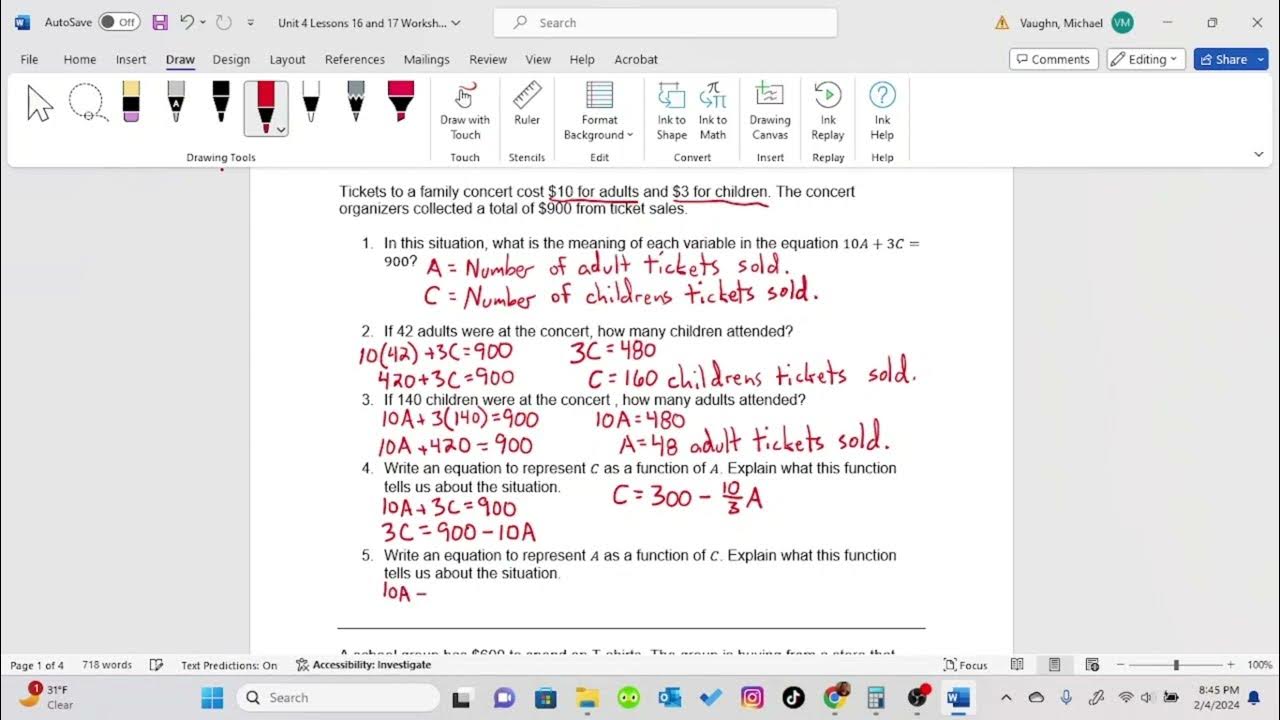 AutoSave Off Unit 4 Lessons 16 and 17 Worksh... Search Vaughn, Michael VM
File Home Insert Draw Design Layout References Mailings Review View Help Acrobat Comments Editing Share
Draw with Touch
Ruler
Format Background
Ink to Shape
Ink to Math
Drawing Canvas
Ink Replay
Ink Help
Drawing Tools Touch Stencils Edit Convert Insert Replay Help
Tickets to a family concert cost $10 for adults and $3 for children. The concert
organizers collected a total of $900 from ticket sales.
1. In this situation, what is the meaning of each variable in the equation 10A + 3C =
900? A = Number of adult tickets sold.
C = Number of childrens tickets sold.
2. If 42 adults were at the concert, how many children attended?
10(42) +3C=900 3C=480
420+3C=900 C=160 childrens tickets sold.
3. If 140 children were at the concert , how many adults attended?
10A+3(140)=900 10A=480
10A+420=900 A=48 adult tickets sold.
4. Write an equation to represent C as a function of A. Explain what this function
tells us about the situation. C=300-10/3A
10A+3C=900
3C=900-10A
5. Write an equation to represent A as a function of C. Explain what this function
tells us about the situation.
10A -
A school group has $600 to spend on T-shirts. The group is buying from a store that
Page 1 of 4 718 words Text Predictions: On Accessibility: Investigate Focus 100%
1 31°F
Clear
Search
8:45 PM
2/4/2024